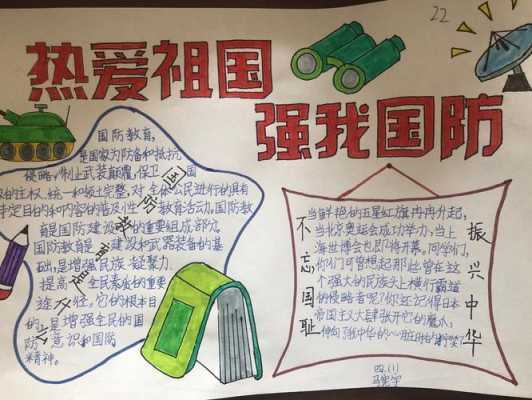 22
热爱祖国
强我国防
国防教育,
是国家为防备和抵抗
侵略,制止武装颠覆,保卫国
的主权、统一和领土完整,对全体公民进行的具有
特定目的和内容的普及性教育活动。国防教
育是国防建设的重要组成部分,
国防教育是建设和武器装备的基
础,是增强民族凝聚力
提高全民素质的重要
途径。它的根本目
的,是增强全民的国
防意识和国防
精神。
国防教育
不忘国耻
当鲜艳的五星红旗冉冉升起,
当北京奥运会成功举办,当上
海世博会也即将开幕,同学们,
你们可曾想起那些曾在这
个强大的民族头上横行霸道
的侵略者呢?你还记得日本
帝国主义大肆张开它的魔爪,
伸向中华的心脏的时
振兴中华
四.(1)